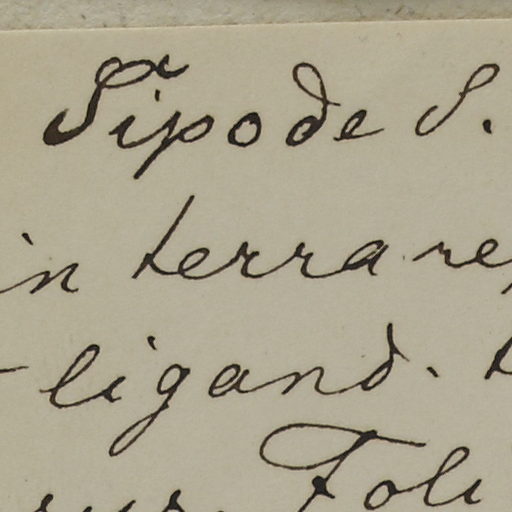 Tipode S.
in terra re
-ligand.
Foli